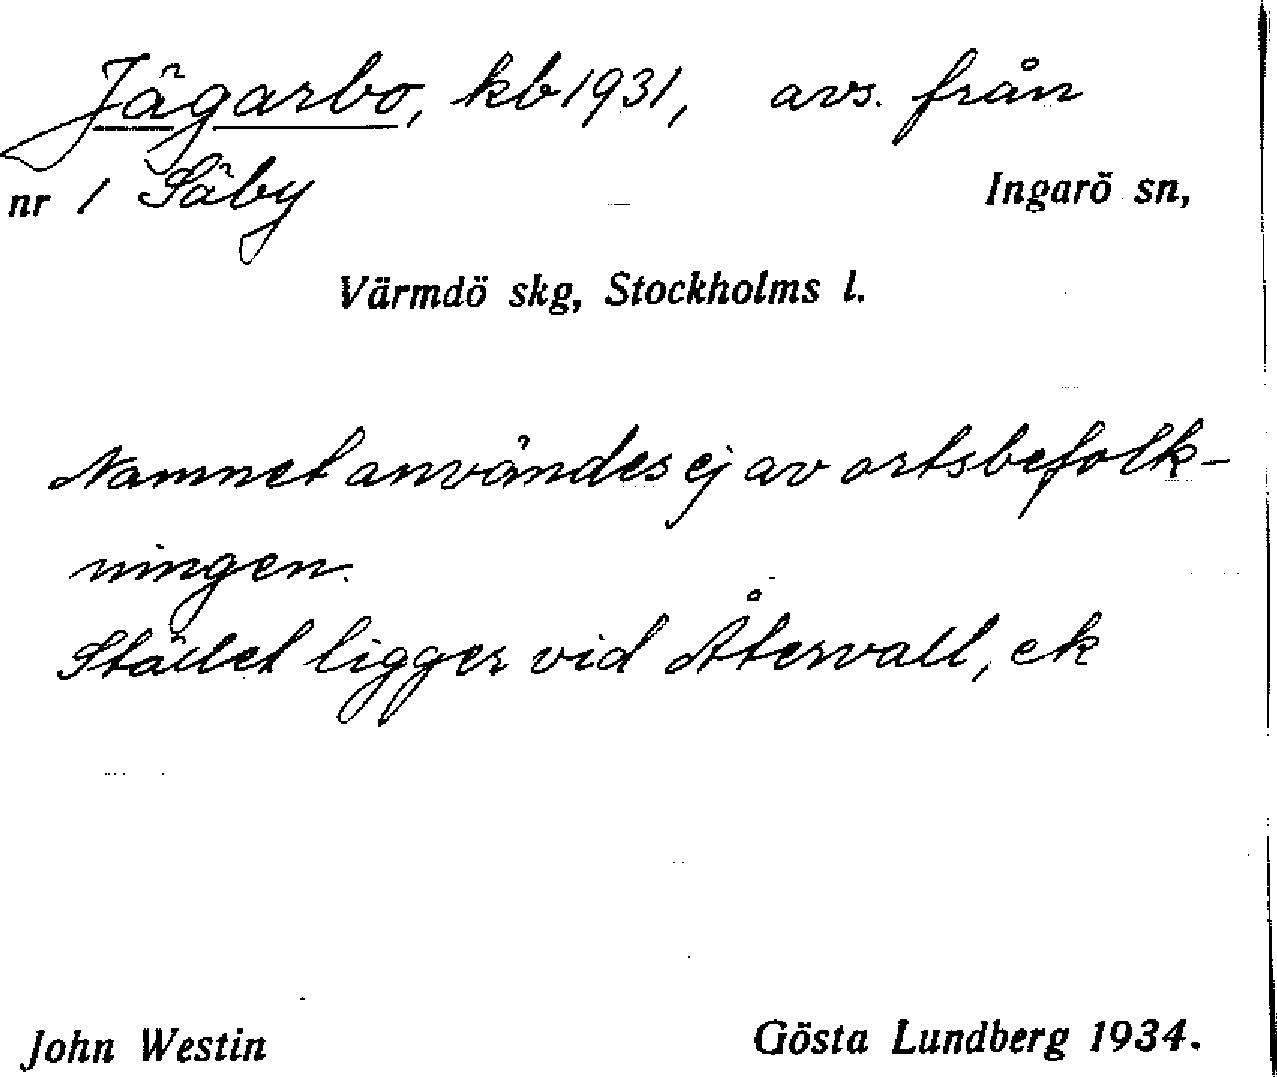 Jägarbo, kb 1931, avs. från
nr 1 Säby Ingarö sn,
Värmdö skg, Stockholms l.
Namnet användes ej av ortsbefolk-
ningen.
Stället ligger vid Återvall, ek
John Westin Gösta Lundberg 1934.